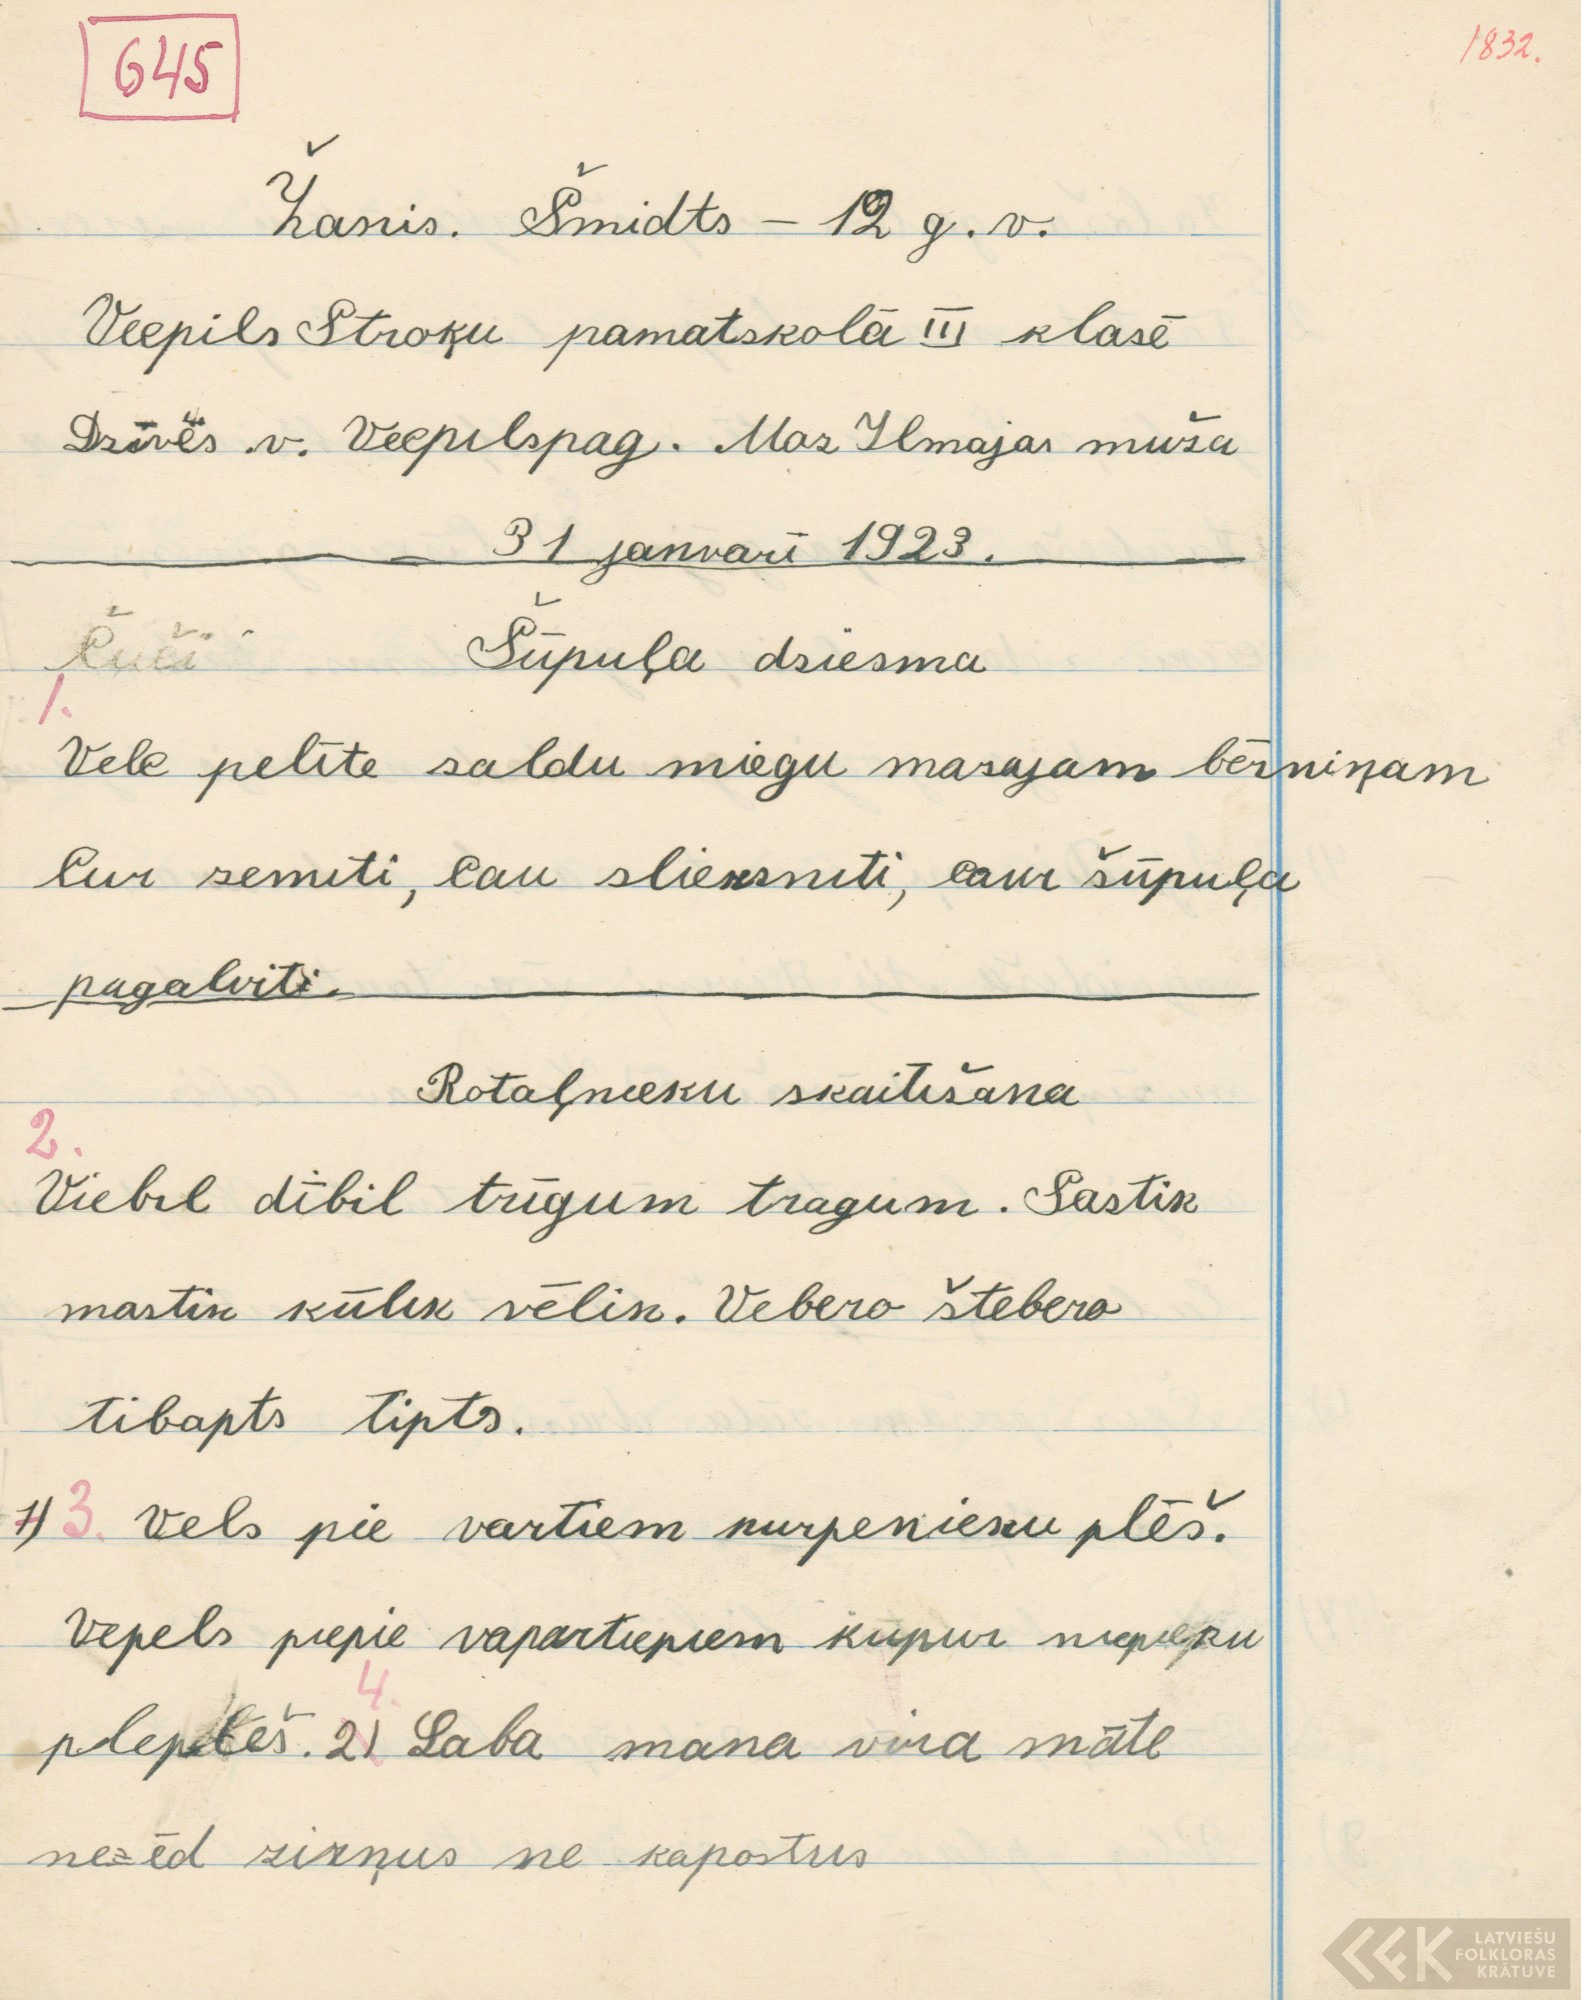 645
1832.
Žanis. Šmidts – 12 g. v.
Vecpils Stroķu pamatskolā III klasē
Dzīvēs .v. Vecpilspag. Maz Ilmajas muiža
31 janvarī 1923.
Čuči
Šūpuļa dziesma
1.
Velc pelīte saldu miegu mazajam bērniņam
Cur zemīti, cau slieksnīti, caur šūpuļa
pagalvīti.
Rotaļneeku skaitīšana
2.
Viebel dībil trīgum tragum. Sastik
mastik kūlik vēlik. Vebero štebero
tibapts tipts.
1) 3. Vels pie vartiem kurpenieku plēš.
Vepels piepie vapartiepiem kupur niepieku
plepleš. 4. 2) Laba mana vira māte
ne ēd zirņus ne kapostus
LATVIEŠU
FOLKLORAS
KRĀTUVE